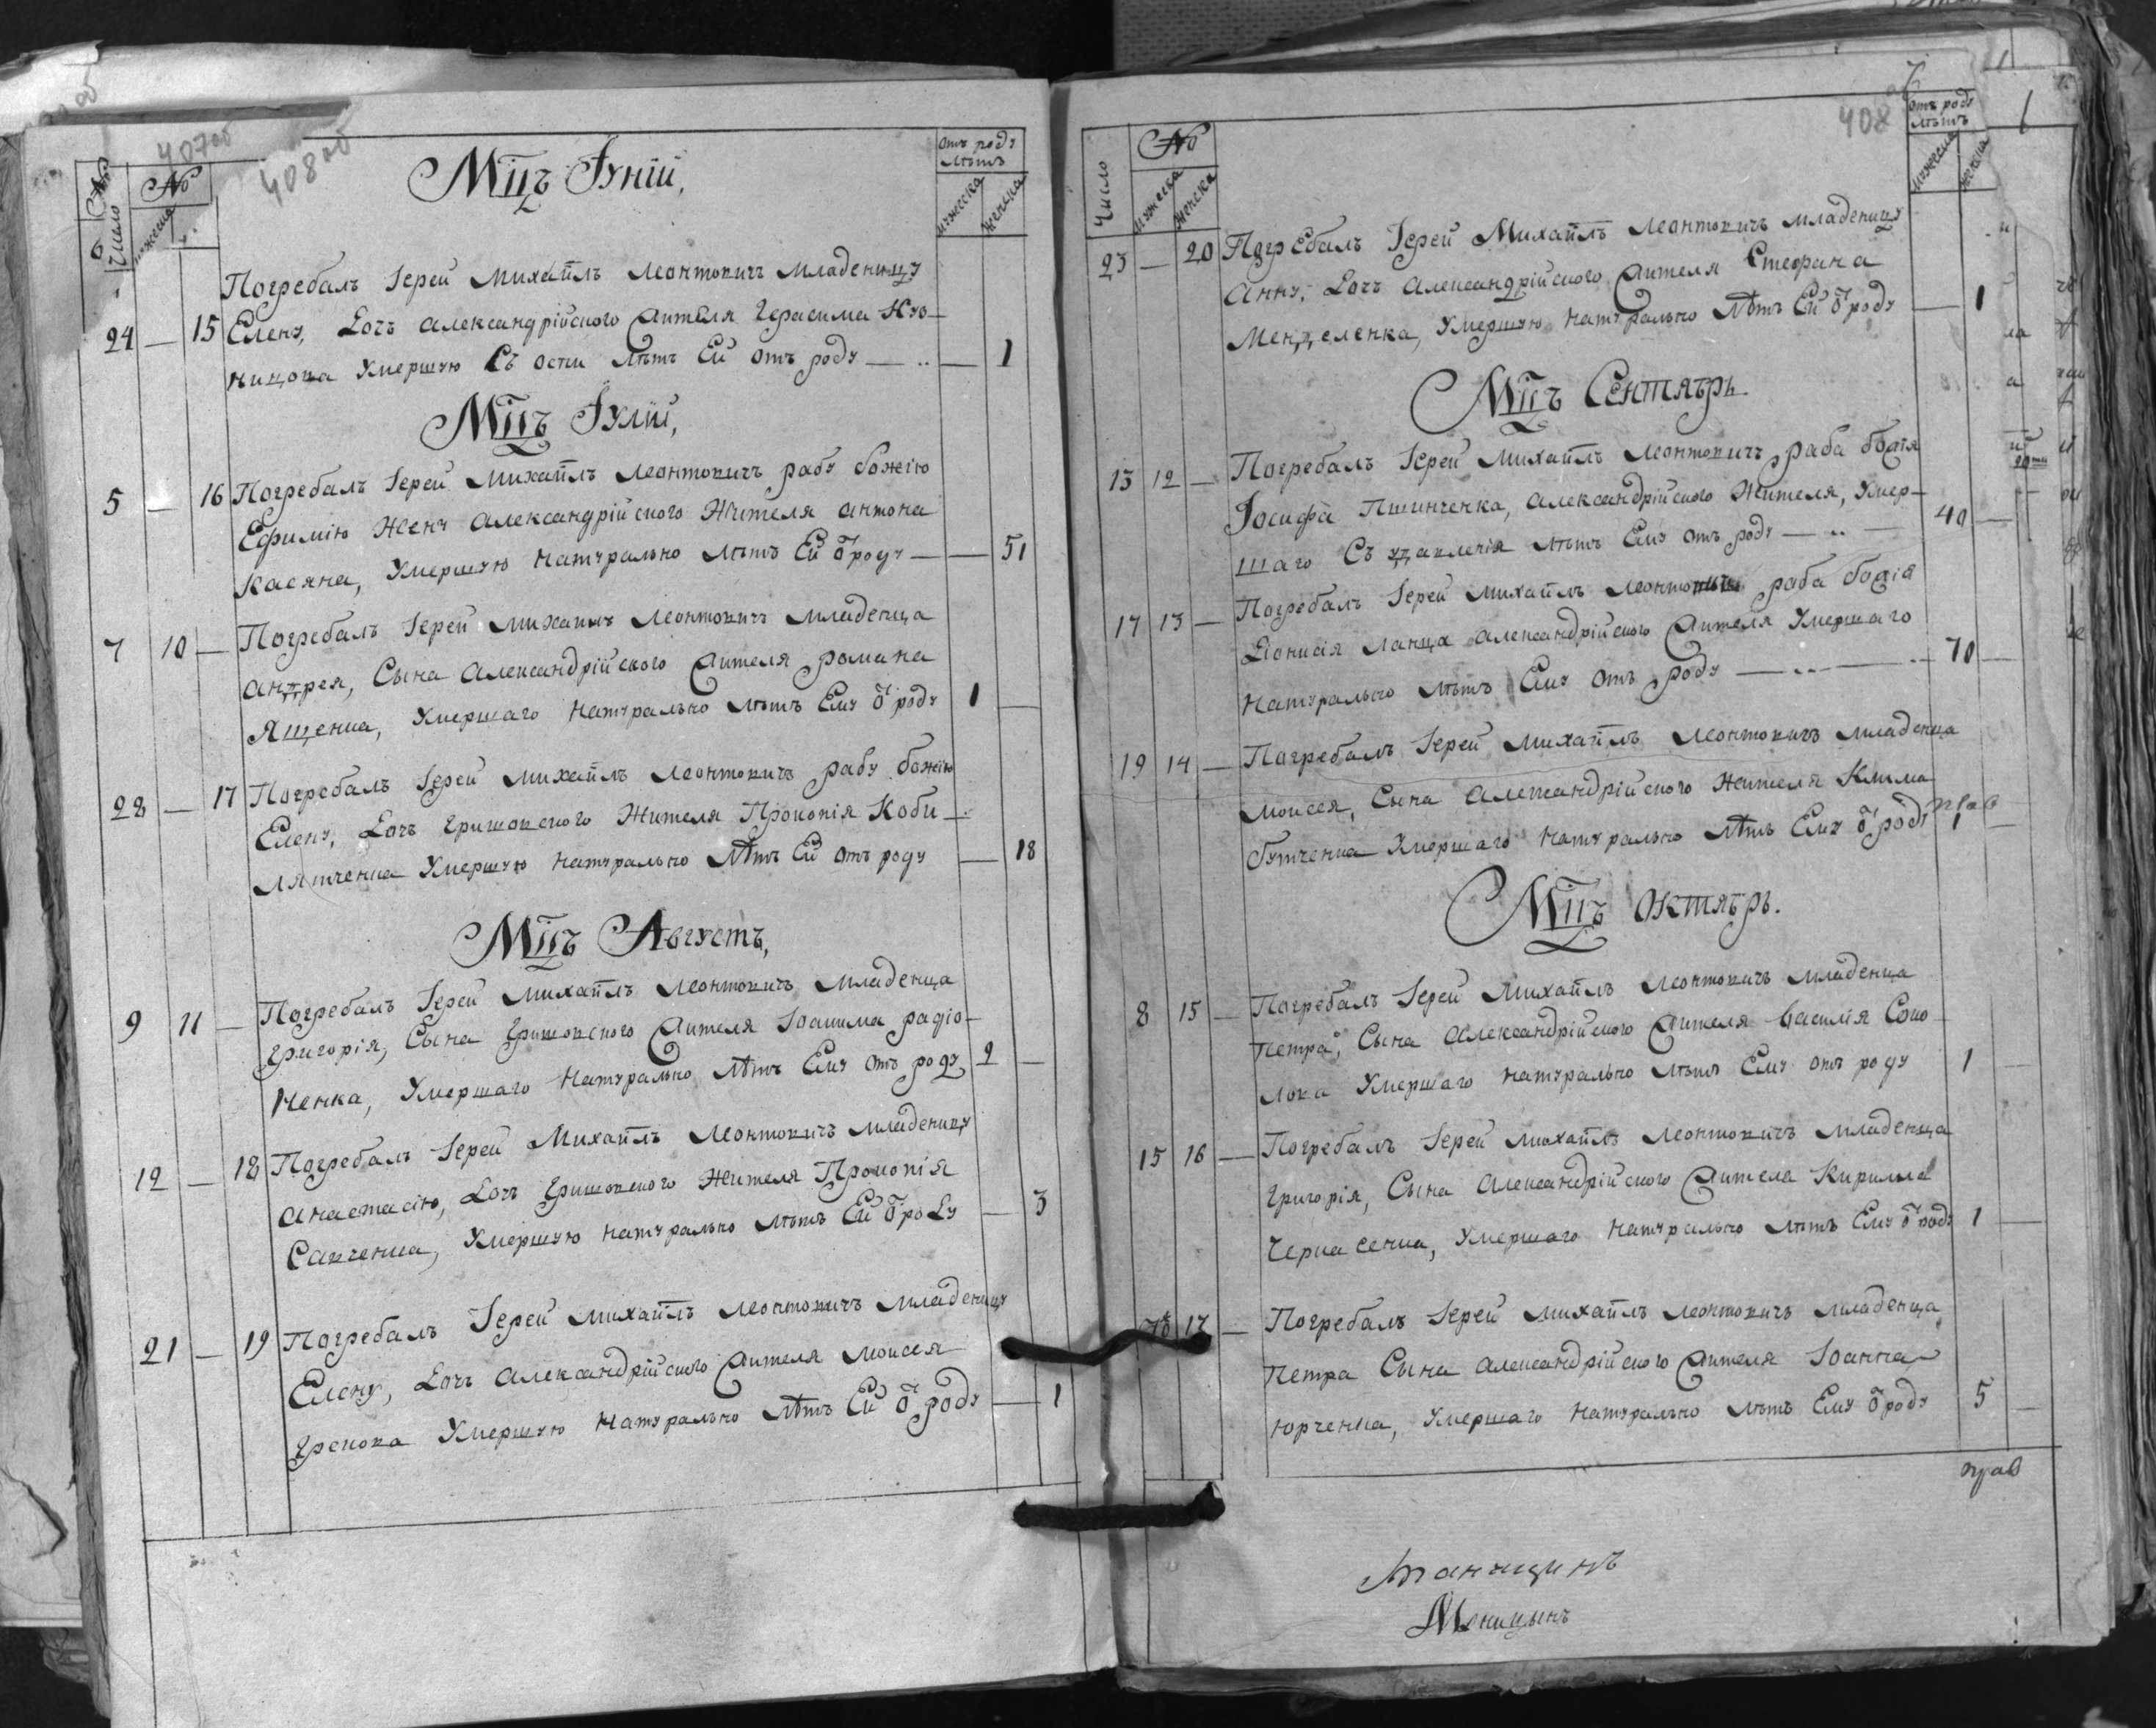 407об
408об
№
Число
№
мужеска
отъ роду
лѣтъ
мужеска
женска
Мцъ Іуній,
24 — 15 Погребалъ Іерей Михаилъ Леонтовичъ младеницу
Елену, Дочь александрійского жителя Герасима Куз-
ницова умершую Съ оспи лѣтъ Ей отъ роду — 1
Мцъ Іулій,
5 — 16 Погребалъ Іерей Михаилъ Леонтовичъ рабу божію
Ефимію Жену александрійского Жителя антона
Касяна, умершую натурально лѣтъ Ей ѿ роду — 51
7 10 — Погребалъ Іерей Михаилъ Леонтовичъ младенца
андрея, Сына александрійского жителя романа
Ященка, умершаго натурально лѣтъ Ему ѿ роду 1 —
28 — 17 Погребалъ Іерей Михаилъ Леонтовичъ рабу божію
Елену, Дочь гришовского Жителя Прокопія Коби-
лятченка умершую натурально лѣтъ Ей отъ роду — 18
Мцъ Августъ,
9 11 — Погребалъ Іерей Михаилъ Леонтовичъ младенца
григорія, Сына гришовского жителя Іоакима радіо-
ненка, умершаго натурально лѣтъ Ему отъ роду 2 —
12 — 18 Погребалъ Іерей Михаилъ Леонтовичъ младеницу
анастасію, Дочь гришовского Жителя Прокопія
Савченка, умершую натурально лѣтъ Ей ѿ роду — 3
21 — 19 Погребалъ Іерей Михаилъ Леонтовичъ младеницу
Елену, Дочь александрійского жителя моисея
грекова умершую натурально лѣтъ Ей ѿ роду — 1
408
Число
№
мужеска
женска
отъ роду
лѣтъ
мужеска
женска
23 — 20 Погребалъ Іерей Михаилъ Леонтовичъ младеницу
анну, Дочь александрійского жителя Стефана
Менделенка, умершую натурально лѣтъ Ей ѿ роду — 1
Мцъ Сентябрь.
13 12 — Погребалъ Іерей Михаилъ Леонтовичъ раба божія
Іосифа Пшинченка, александрійского Жителя, умер-
шаго Съ удавленія лѣтъ Ему отъ роду — 40 —
17 13 — Погребалъ Іерей Михаилъ Леонтовичъ раба божія
Діонисія Ланца александрійского жителя умершаго
натурально лѣтъ Ему отъ роду — 70 —
19 14 — Погребалъ Іерей Михаилъ Леонтовичъ младенца
моисея, Сына александрійского жителя Клима
бутченка умершаго натурально лѣтъ Ему ѿ роду 1 —
Мцъ Октябрь.
8 15 — Погребалъ Іерей Михаилъ Леонтовичъ младенца
петра, Сына александрійского жителя василія Соко-
лова умершаго натурально лѣтъ Ему отъ роду 1
15 16 — Погребалъ Іерей Михаилъ Леонтовичъ младенца
григорія, Сына александрійского жителя Кирилла
Черкасенка, умершаго натурально лѣтъ Ему ѿ роду 1 —
17 — Погребалъ Іерей Михаилъ Леонтовичъ младенца
петра Сына александрійского жителя Іоанна
юрченка, умершаго натурально лѣтъ Ему ѿ роду 5 —